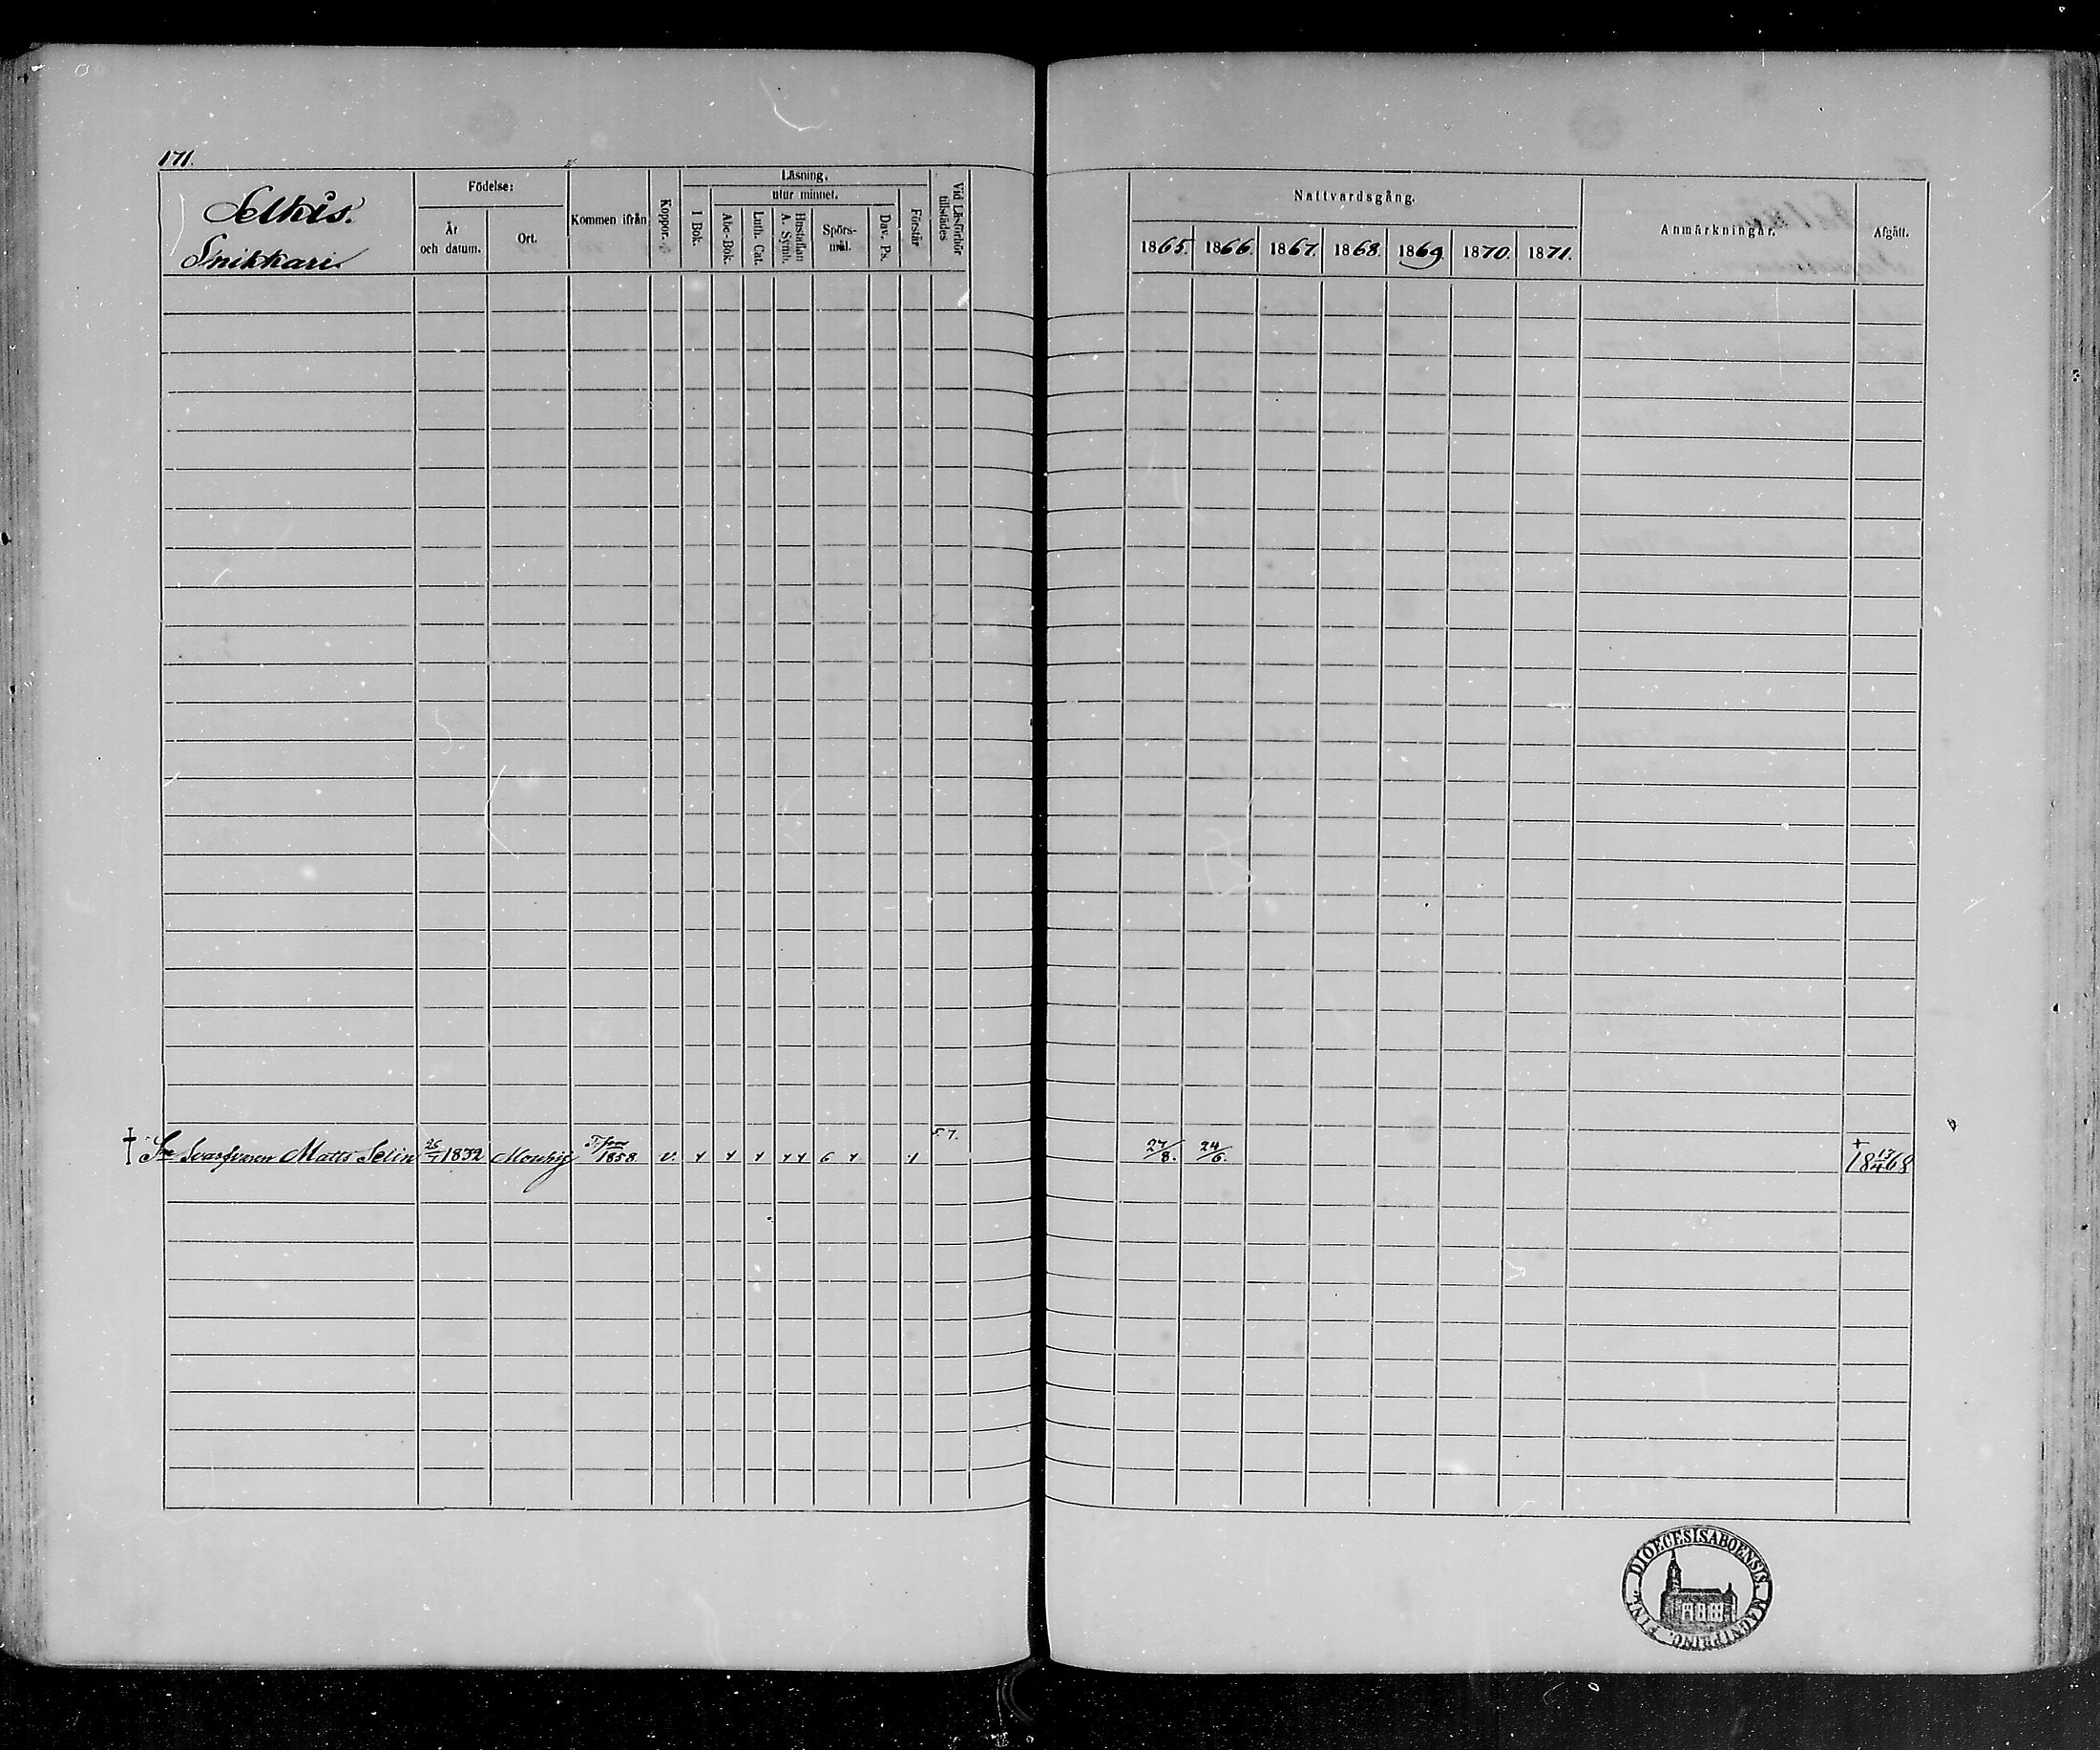 171.
Selkis.
Snikkari.
Födelse:
År och datum.
Ort.
Kommen ifrån
Koppor.
Läsning,
utur minnet.
I Bok.
Abc-Bok.
Luth. Cat.
Hustaflan A. Symb.
Spörsmål.
Dav. Ps.
Förstår
Vid Läsförhör tillstädes
Nattvardsgång.
1865. 1866. 1867. 1868. 1869. 1870. 1871.
Anmärkningar.
Afgått.
† Matts Selin 26/7 1832 1858. v. 6 57. 27/8. 24/6. † 18 13/4 68
DIOECESIS ABOENSIS. MAGNI PRINC. FINL.